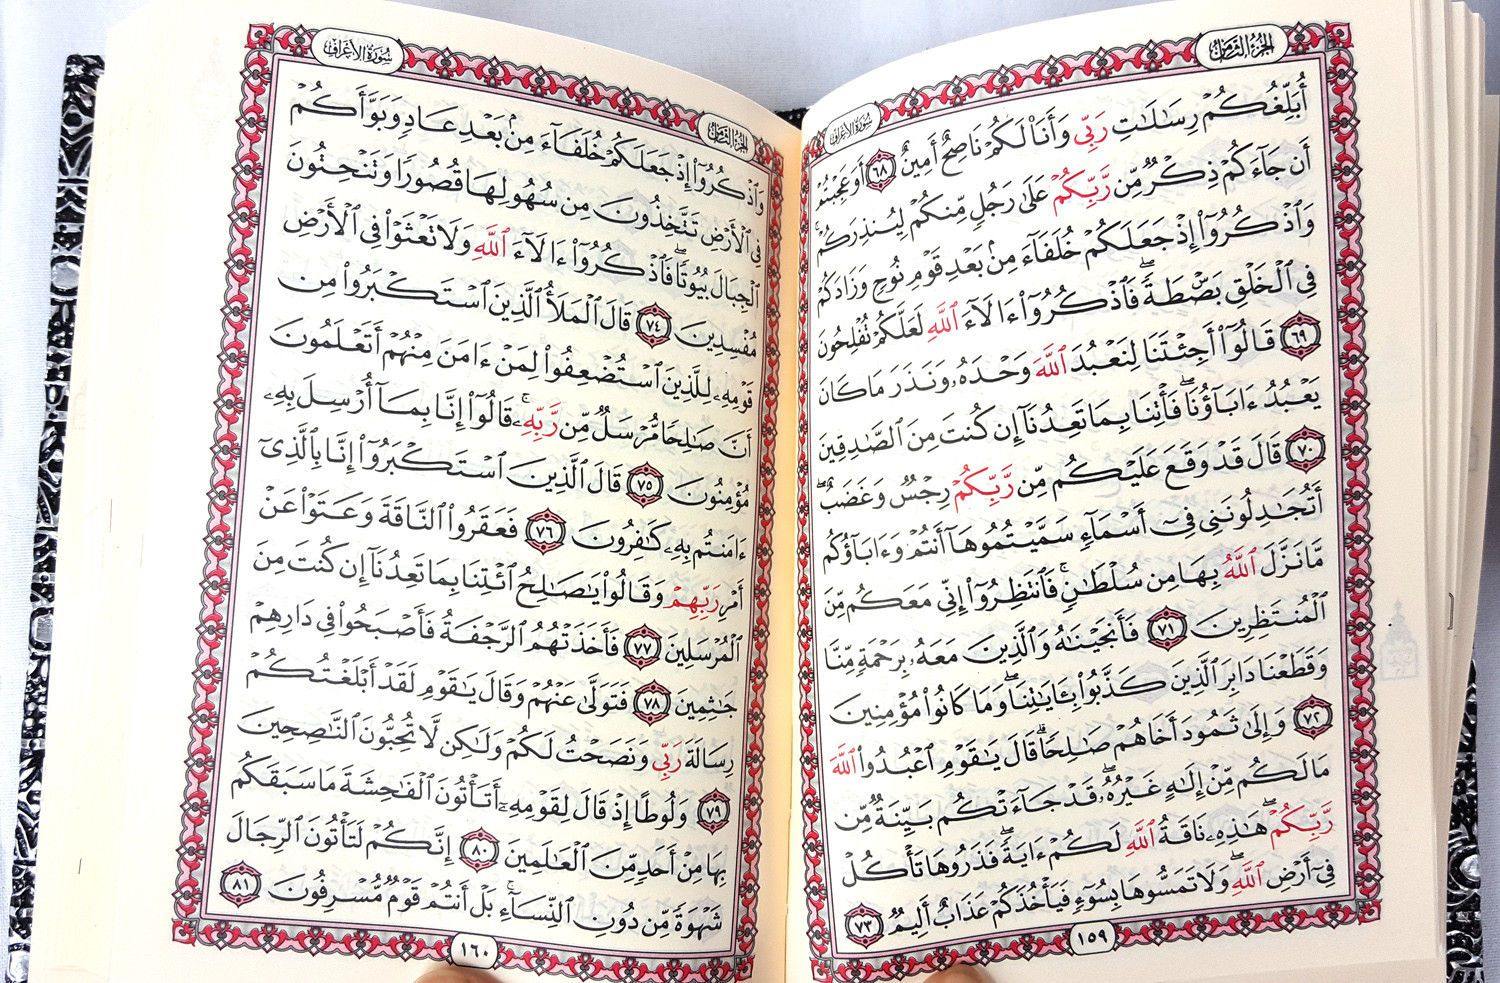 الجزء الثامن
سورة الأعراف
أُبَلِّغُكُمْ رِسَٰلَٰتِ رَبِّي وَأَنَا۠ لَكُمْ نَاصِحٌ أَمِينٌ ٦٨ أَوَعَجِبْتُمْ
أَن جَآءَكُمْ ذِكْرٌ مِّن رَّبِّكُمْ عَلَىٰ رَجُلٍ مِّنكُمْ لِيُنذِرَكُمْ ۚ
وَٱذْكُرُوٓا۟ إِذْ جَعَلَكُمْ خُلَفَآءَ مِنۢ بَعْدِ قَوْمِ نُوحٍ وَزَادَكُمْ
فِي ٱلْخَلْقِ بَصْۜطَةً ۖ فَٱذْكُرُوٓا۟ ءَالَآءَ ٱللَّهِ لَعَلَّكُمْ تُفْلِحُونَ
٦٩ قَالُوٓا۟ أَجِئْتَنَا لِنَعْبُدَ ٱللَّهَ وَحْدَهُۥ وَنَذَرَ مَا كَانَ
يَعْبُدُ ءَابَآؤُنَا ۖ فَأْتِنَا بِمَا تَعِدُنَآ إِن كُنتَ مِنَ ٱلصَّٰدِقِينَ
٧٠ قَالَ قَدْ وَقَعَ عَلَيْكُم مِّن رَّبِّكُمْ رِجْسٌ وَغَضَبٌ ۖ
أَتُجَٰدِلُونَنِي فِيٓ أَسْمَآءٍ سَمَّيْتُمُوهَآ أَنتُمْ وَءَابَآؤُكُم
مَّا نَزَّلَ ٱللَّهُ بِهَا مِن سُلْطَٰنٍ ۚ فَٱنتَظِرُوٓا۟ إِنِّي مَعَكُم مِّنَ
ٱلْمُنتَظِرِينَ ٧١ فَأَنجَيْنَٰهُ وَٱلَّذِينَ مَعَهُۥ بِرَحْمَةٍ مِّنَّا
وَقَطَعْنَا دَابِرَ ٱلَّذِينَ كَذَّبُوا۟ بِـَٔايَٰتِنَا ۖ وَمَا كَانُوا۟ مُؤْمِنِينَ
٧٢ وَإِلَىٰ ثَمُودَ أَخَاهُمْ صَٰلِحًا ۗ قَالَ يَٰقَوْمِ ٱعْبُدُوا۟ ٱللَّهَ
مَا لَكُم مِّنْ إِلَٰهٍ غَيْرُهُۥ ۖ قَدْ جَآءَتْكُم بَيِّنَةٌ مِّن
رَّبِّكُمْ ۖ هَٰذِهِۦ نَاقَةُ ٱللَّهِ لَكُمْ ءَايَةً ۖ فَذَرُوهَا تَأْكُلْ
فِيٓ أَرْضِ ٱللَّهِ ۖ وَلَا تَمَسُّوهَا بِسُوٓءٍ فَيَأْخُذَكُمْ عَذَابٌ أَلِيمٌ ٧٣
١٥٩
الجزء الثامن
سورة الأعراف
وَٱذْكُرُوٓا۟ إِذْ جَعَلَكُمْ خُلَفَآءَ مِنۢ بَعْدِ عَادٍ وَبَوَّأَكُمْ
فِي ٱلْأَرْضِ تَتَّخِذُونَ مِن سُهُولِهَا قُصُورًا وَتَنْحِتُونَ
ٱلْجِبَالَ بُيُوتًا ۖ فَٱذْكُرُوٓا۟ ءَالَآءَ ٱللَّهِ وَلَا تَعْثَوْا۟ فِي ٱلْأَرْضِ
مُفْسِدِينَ ٧٤ قَالَ ٱلْمَلَأُ ٱلَّذِينَ ٱسْتَكْبَرُوا۟ مِن
قَوْمِهِۦ لِلَّذِينَ ٱسْتُضْعِفُوا۟ لِمَنْ ءَامَنَ مِنْهُمْ أَتَعْلَمُونَ
أَنَّ صَٰلِحًا مُّرْسَلٌ مِّن رَّبِّهِۦ ۚ قَالُوٓا۟ إِنَّا بِمَآ أُرْسِلَ بِهِۦ
مُؤْمِنُونَ ٧٥ قَالَ ٱلَّذِينَ ٱسْتَكْبَرُوٓا۟ إِنَّا بِٱلَّذِيٓ
ءَامَنتُم بِهِۦ كَٰفِرُونَ ٧٦ فَعَقَرُوا۟ ٱلنَّاقَةَ وَعَتَوْا۟ عَنْ
أَمْرِ رَبِّهِمْ وَقَالُوا۟ يَٰصَٰلِحُ ٱئْتِنَا بِمَا تَعِدُنَآ إِن كُنتَ مِنَ
ٱلْمُرْسَلِينَ ٧٧ فَأَخَذَتْهُمُ ٱلرَّجْفَةُ فَأَصْبَحُوا۟ فِي دَارِهِمْ
جَٰثِمِينَ ٧٨ فَتَوَلَّىٰ عَنْهُمْ وَقَالَ يَٰقَوْمِ لَقَدْ أَبْلَغْتُكُمْ
رِسَالَةَ رَبِّي وَنَصَحْتُ لَكُمْ وَلَٰكِن لَّا تُحِبُّونَ ٱلنَّٰصِحِينَ
٧٩ وَلُوطًا إِذْ قَالَ لِقَوْمِهِۦٓ أَتَأْتُونَ ٱلْفَٰحِشَةَ مَا سَبَقَكُم
بِهَا مِنْ أَحَدٍ مِّنَ ٱلْعَٰلَمِينَ ٨٠ إِنَّكُمْ لَتَأْتُونَ ٱلرِّجَالَ
شَهْوَةً مِّن دُونِ ٱلنِّسَآءِ ۚ بَلْ أَنتُمْ قَوْمٌ مُّسْرِفُونَ ٨١
١٦٠